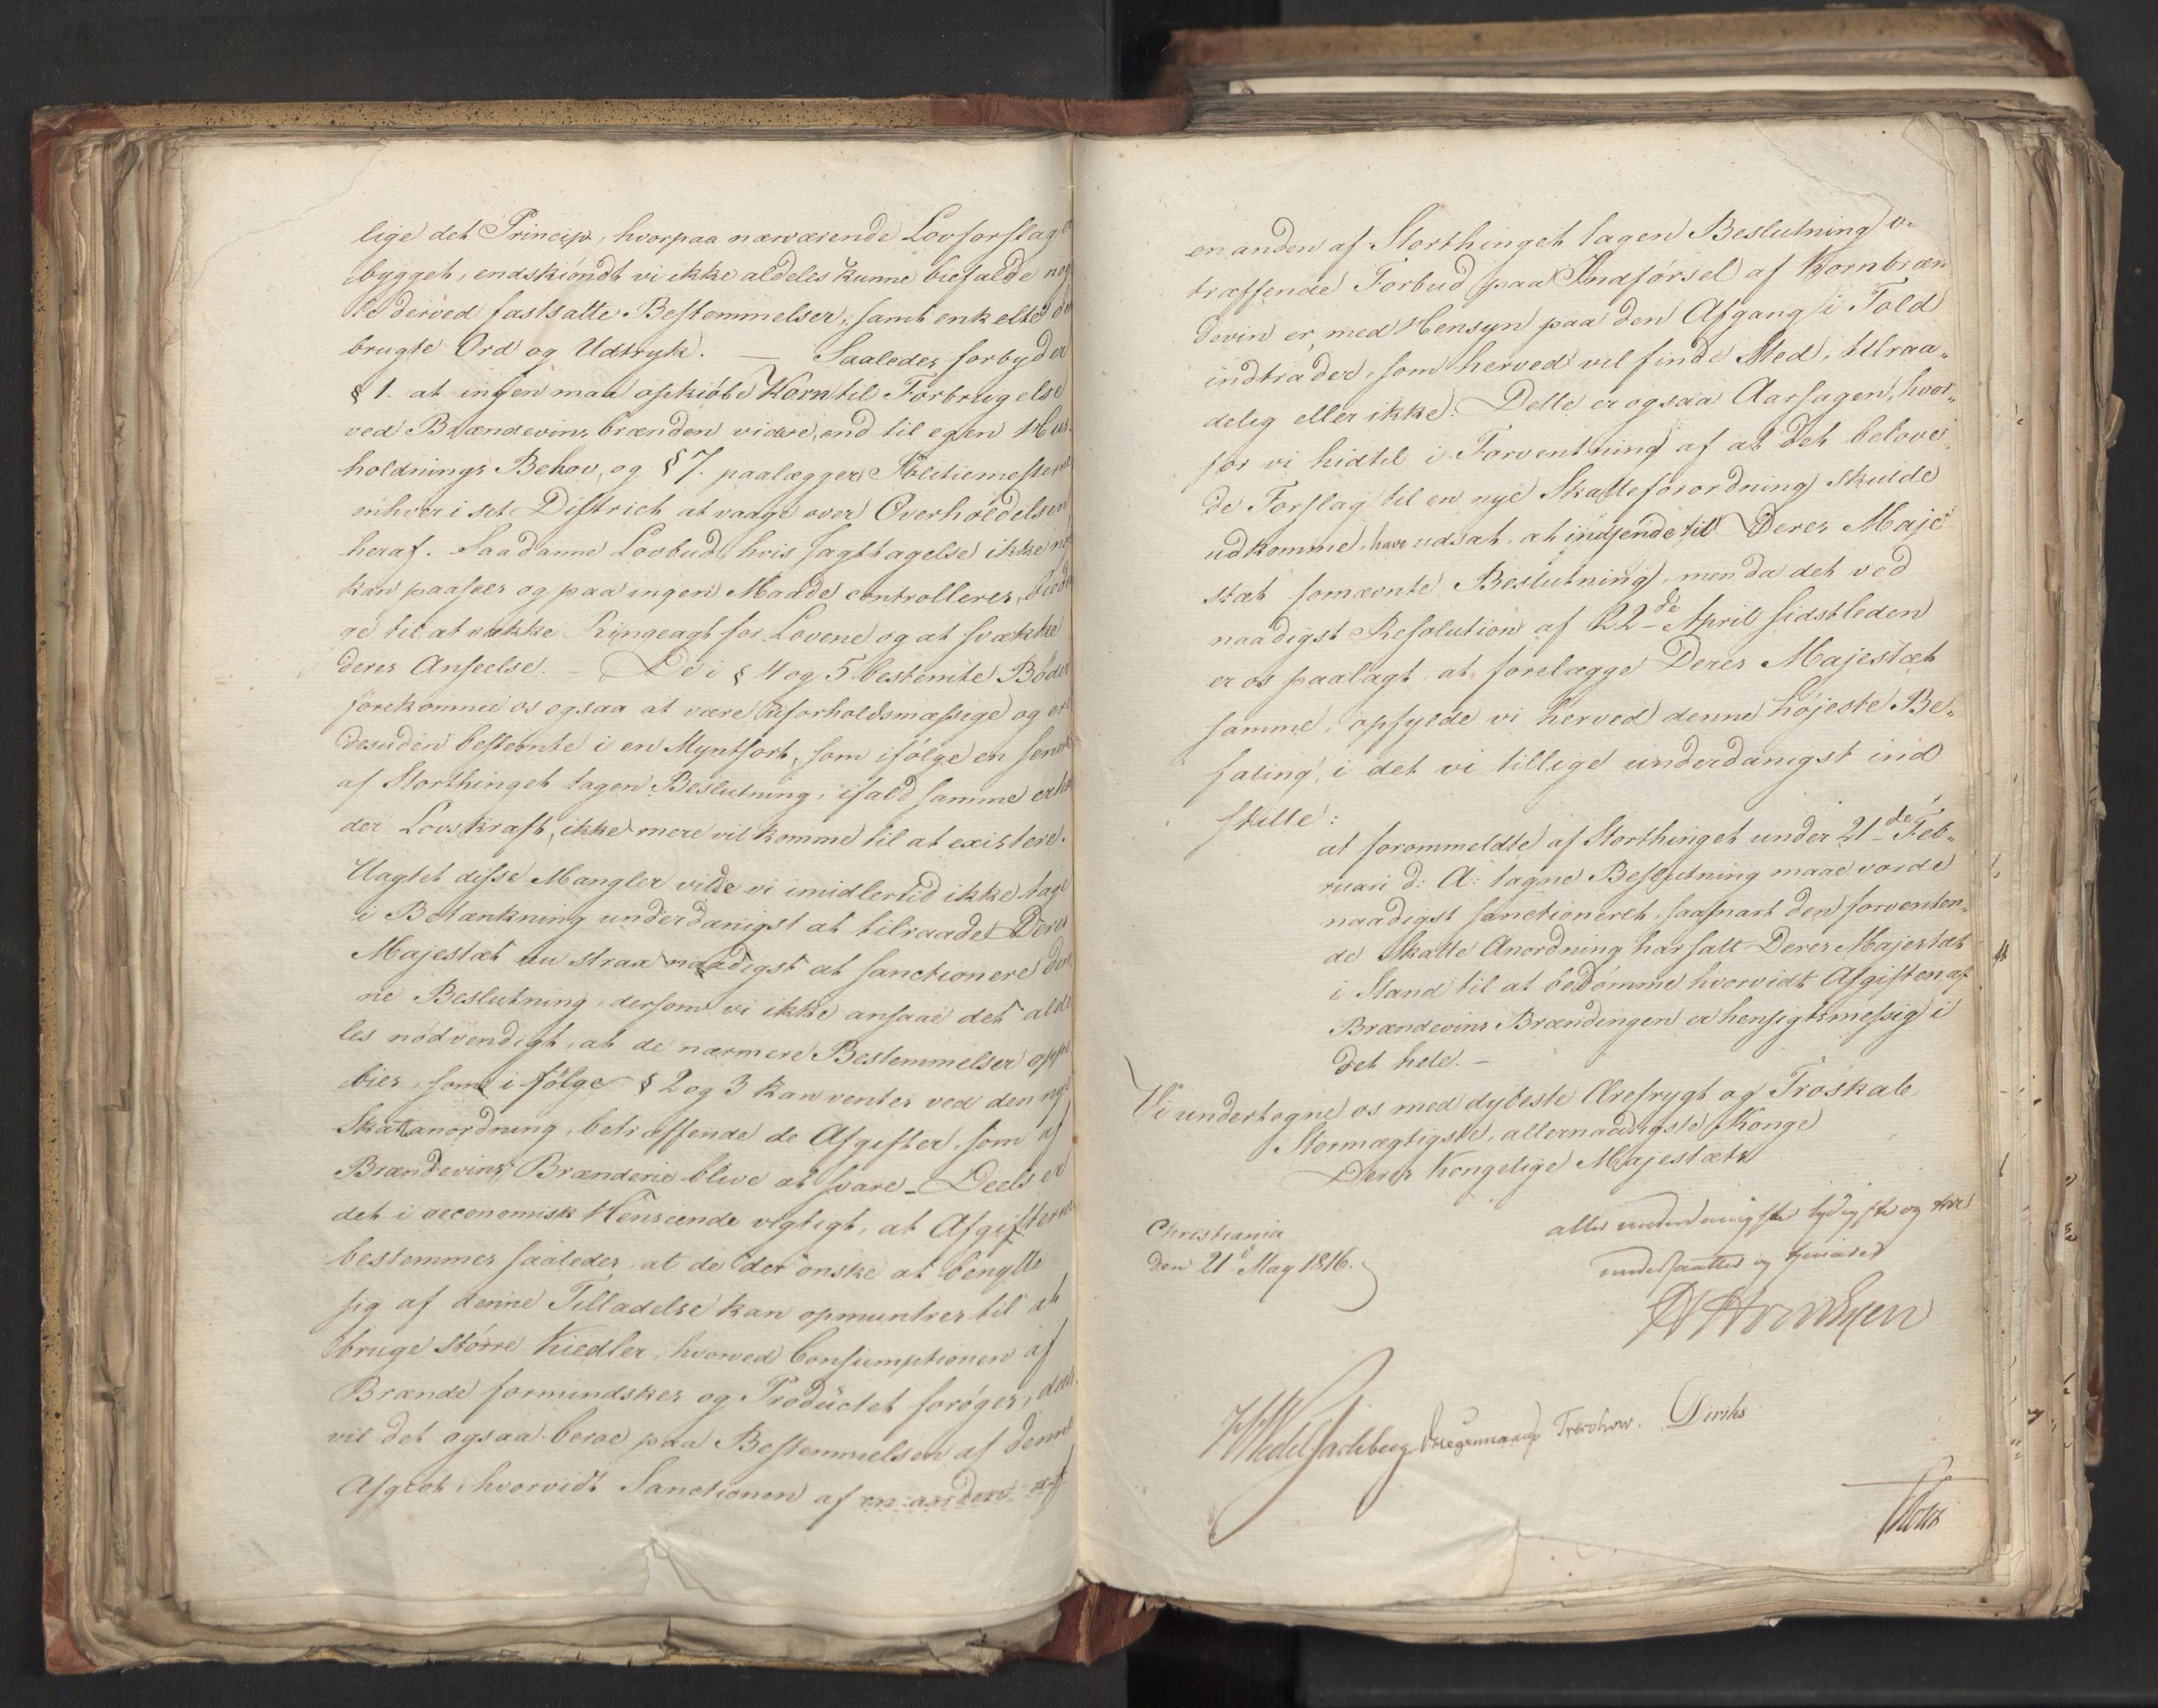 lige det Princip, hvorpaa nærværende Lovforslag er
bygget, endskiöndt vi ikke aldeles kunne biefalde nog
le derved fastsatte Bestemmelser, samt enkelte de
brugte Ord og Udtryk. — Saaledes forbyder
§ 1. at ingen maa opkiöbe Korn til Forbrugelse
ved Brændevins brænden videre, end til egen Huus
holdnings Behov, og § 7. paalægger Politiemesterne
enhver i sit District at vaage over Overholdelsen
heraf. Saadanne Lovbud, hvis Iagttagelse ikke nöie
kan paasees og paa ingen Maade controlleres, bidra
ge til at svække Ringeagt for Lovene og at svække
deres Anseelse. — De i § 4 og 5 bestemte Böder
forekomme os ogsaa at være uforholdsmæssige og ere
desuden bestemte i en Myntsort, som ifölge en senere
af Storthinget tagen Beslutning, ifald samme erhol
der Lovskraft, ikke mere vil komme til at existere.
Uagtet disse Mangler vilde vi imidlertid ikke tage
i Betænkning underdanigst at tilraade Deres
Majestæt nu strax naadigst at sanctionere den
ne Beslutning, dersom vi ikke ansaae det alde
les nödvendigt, at de nærmere Bestemmelser oppe
bies, som i fölge § 2 og 3 kan ventes ved den nye
Skatanordning, betræffende de Afgifter, som af
Brændevins Brænderie blive at svare – Deels er
det i oeconomisk Henseende vigtigt, at Afgifterne
bestemmes saaledes at de der önske at benytte
sig af denne Tilladelse kan opmuntres til at
bruge större Kiedler, hvorved Consumptionen af
Brænde formindskes og Productet foröges, deels
vil det ogsaa beroe paa Bestemmelsen af denne
Afgivt, hvorvidt Sanctionen af en anden af
en anden af Storthinget tagen Beslutning be-
træffende Forbud paa Indförsel af Kornbræn
devin er, med Hensyn paa den Afgang i Told
indtrader, som herved vil finde Sted, tilraa„
delig eller ikke. Dette er ogsaa Aarsagen, hvor„
for vi hidtil i Forventning af at det belove„
de Forslag til en nye Skatteforordning skulde
udkomme, have udsat at indsende til Deres Maje
stæt fornævnte Beslutning, men da det ved
naadigst Resolution af 22de April sidstleden
er os paalagt at forelægge Deres Majestæt
samme, opfylde vi herved denne höjeste Be„
faling, i det vi tillige underdanigst ind
stille:
at forommeldte af Storthinget under 21de Feb„
ruari d: A: tagne Beslutning maae vorde
naadigst sanctioneret, saasnart den forventen„
de Skatte Anordning har satt Deres Majestæt
i Stand til at bedömme hvorvidt Afgiften af
Brændevins Brændingen er hensigtsmessig i
det hele. –
Vi undertegne os med dybeste Ærefrygt og Troskab
Stormægtigste, allernaadigste Konge
Deres Kongelige Majestæts
aller underdanigste lydigste og troe
undersaatter og tjenere
Christiania
den 21d May 1816.
Hwedel Jarlsberg Treschow. Diriks